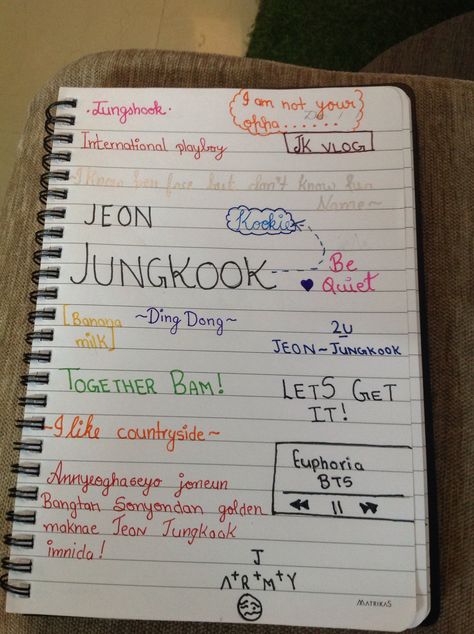 .Jungshook.
I am not your
oppa......
International playboy
JK VLOG
I know her face but don't know her
Name~
JEON
Kookie
JUNGKOOK
Be
Quiet
[Banana
milk]
~Ding Dong~
2U
JEON~JUNGKOOK
TOGETHER BAM!
LETS GET
IT!
~I like countryside~
Euphoria
BTS
Annyeoghaseyo joneun
Bangtan Sonyondan golden
maknae Jeon Jungkook
imnida!
J
A+R+M+Y
MATRIKAS